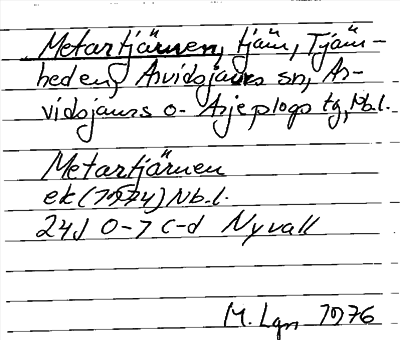 Metartjärnen, tjärn, Tjärn-
heden, Arvidsjaurs sn, Ar-
vidsjaurs o- Arjeplogs tg, Nb.l.
Metartjärnen
ek (1974) Nb.l.
24J 0-7 c-d Nyvall
M. Lgn 1976